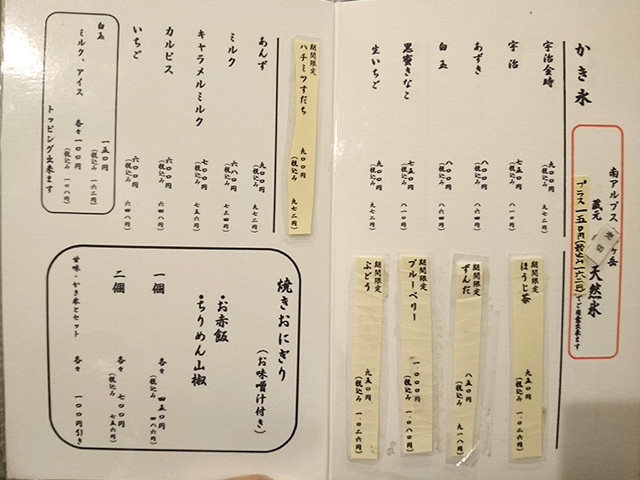 かき氷
南アルプス
ヶ岳
蔵元
天然氷
プラス一五〇円(税込み一六二円)
でご用意出来ます
宇治金時 九〇〇円
(税込み 九七二円)
宇治 七五〇円
(税込み 八一〇円)
あずき 八〇〇円
(税込み 八六四円)
白玉 八〇〇円
(税込み 八六四円)
黒蜜きなこ 七五〇円
(税込み 八一〇円)
生いちご 九〇〇円
(税込み 九七二円)
期間限定
ほうじ茶 九五〇円
(税込み 一〇二六円)
期間限定
ずんだ 八五〇円
(税込み 九一八円)
期間限定
ブルーベリー 一〇〇〇円
(税込み 一〇八〇円)
期間限定
ぶどう 九五〇円
(税込み 一〇二六円)
期間限定
ハチミツすだち 九〇〇円
(税込み 九七二円)
あんず 九〇〇円
(税込み 九七二円)
ミルク 六八〇円
(税込み 七三四円)
キャラメルミルク 七〇〇円
(税込み 七五六円)
カルピス 六〇〇円
(税込み 六四八円)
いちご 六〇〇円
(税込み 六四八円)
白玉 一五〇円
(税込み 一六二円)
ミルク、アイス 各々一〇〇円
(税込み 一〇八円)
トッピング出来ます
焼きおにぎり
(お味噌汁付き)
・お赤飯
・ちりめん山椒
一個 各々 四五〇円
(税込み 四八六円)
二個 各々 七〇〇円
(税込み 七五六円)
甘味・かき氷とセット 各々 一〇〇円引き